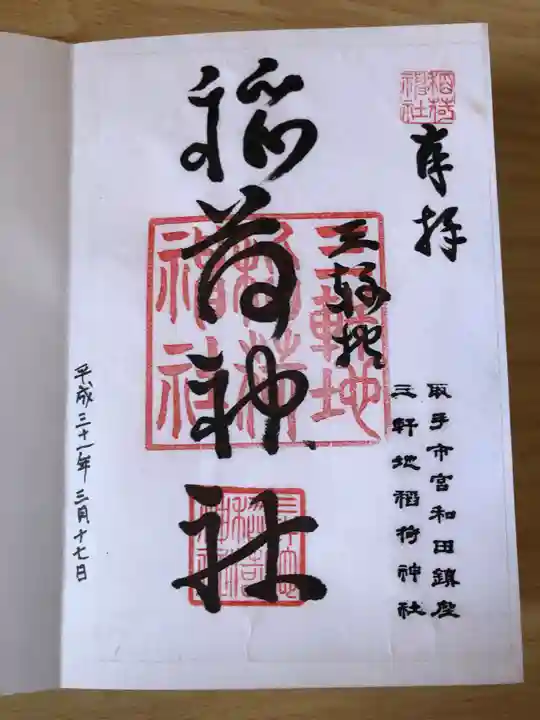 稲荷神社
奉拝
三軒地
稲荷神社
三軒地
稲荷
神社
取手市宮和田鎮座
三軒地稲荷神社
三軒地
稲荷
神社
平成三十一年三月十七日